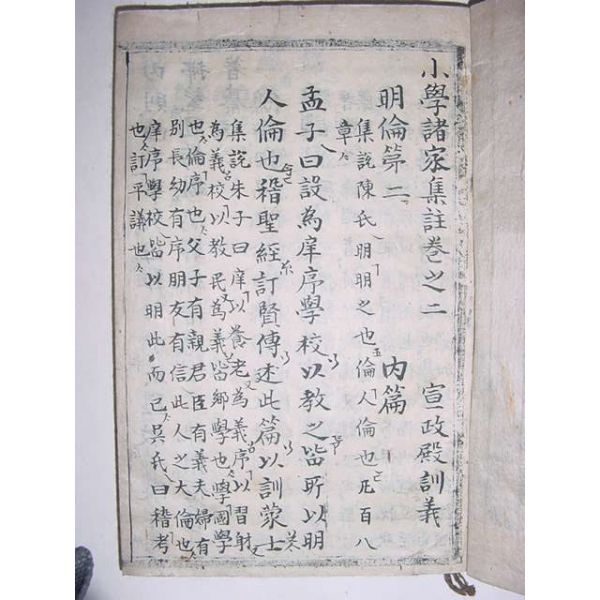 小學諸家集註卷之二 宣政殿訓義
明倫第二 內篇
集說陳氏曰明明之也倫人倫也凡百八
章
孟子曰設為庠序學校以教之皆所以明
人倫也稽聖經訂賢傳述此篇以訓蒙士
集說朱子曰庠以養老為義序以習射
為義校以教民為義皆鄉學也學國學
也倫序也父子有親君臣有義夫婦有
別長幼有序朋友有信此人之大倫也
庠序學校皆以明此而已吳氏曰稽考
也訂平議也